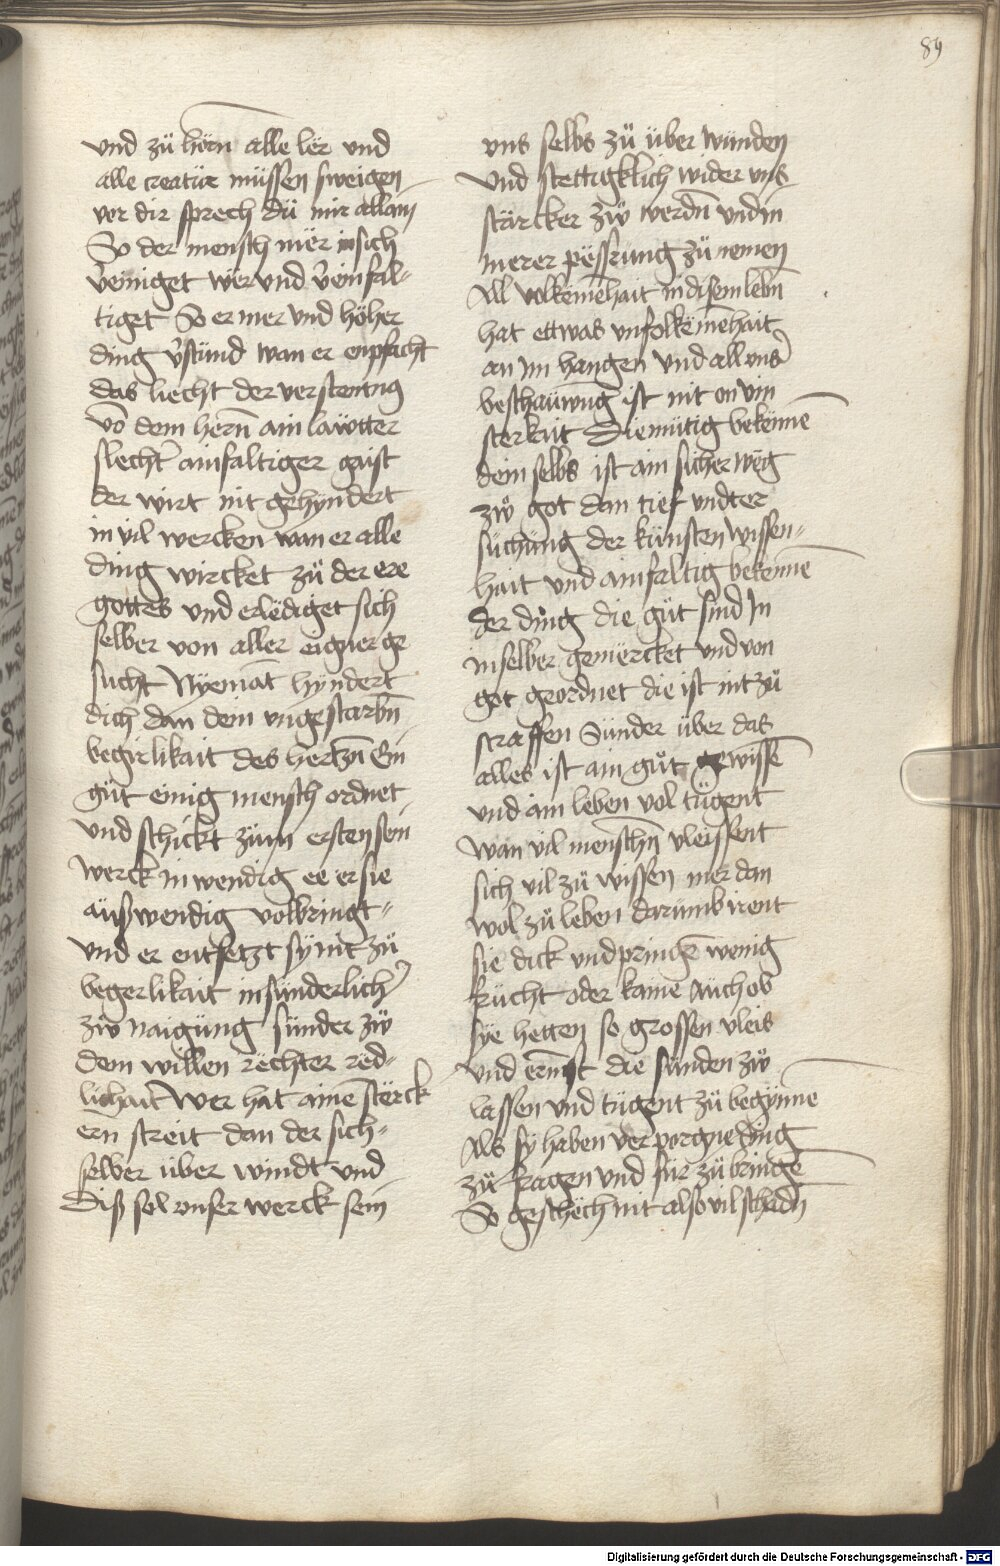 89
und zü hörn alle ler und
alle creatür müssen sweigen
vor dir sprech dü mir allain
So der mensch mër in sich
v̄einiget wër und v̄einfal⸗
tiget So er mer und höher
ding v̄stünd wan er enpfacht
das liecht der verstentnuß
vō dem hern̄ ain lawtter
slechter ainfaltiger gaist
der wirt nit gehyndert
in vil wercken wan er alle
ding wircket zü der ere
gottes und erlediget sich
selber von aller eigner ge
sucht Nyemāt hyndert
dich dan dem ungestarbn̄
begirlikait des hertzn̄ Ein
güt einig mensch ordnet
und schickt züm ersten sein
werck inwendig ee er sie
äußwendig volbringt⸗
und er entsetzt sy nit zü
begerlikait insünderlicher
zw̄ naigüng sünder zw̄
dem willen rëchter red⸗
lichait Wer hat ainē sterck
ern streit dan der sich⸗
selber über windt und
Diß sol unser werck sein
uns selbs zü über winden
und stettigklich wider uns
stärcker zw̄ werdn̄ und in
merer pëssrung zü nemen
All volkēmēhait in disem lebn̄
hat ettwas unfolkēmēhait
an im hangen und all unser
beschaüwng ist nit on vin
sterkait Diemütig bekēnnē
dein selbs ist ain sicher weg
zẘ got dan tief undter
süchüng der künsten wissen⸗
hait und ainfaltig bekennē
der ding die güt sind In
in selber gemërcket und von
got geordnet die ist nit zü
straffen Sünder über das
alles ist ain güt gewissē
und ain leben vol tügent
wan vil menschn̄ vleissent
sich vil zü wissen mer dan
wol zü leben darümb irent
sie dick und pringē wenig
frücht oder kaine Auch ob
sye hetten so grossen vleis
und ernst die sünden zẘ
lassen und tügent zü begynnē
Als sy haben verporgne ding
zü fragen und für zü bringē
So geschëch nit also vil schadn̄
Digitalisierung gefördert durch die Deutsche Forschungsgemeinschaft - DFG